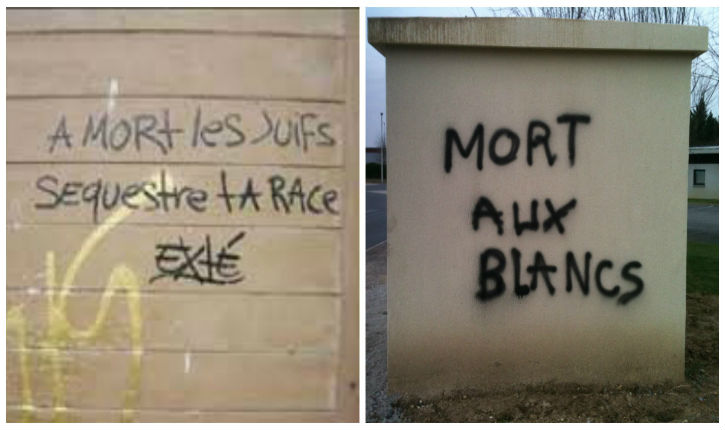 A MORt les JUIFS
SEQUEStRe tA RACe
EXtÉ
MORT
AUX
BLANCS